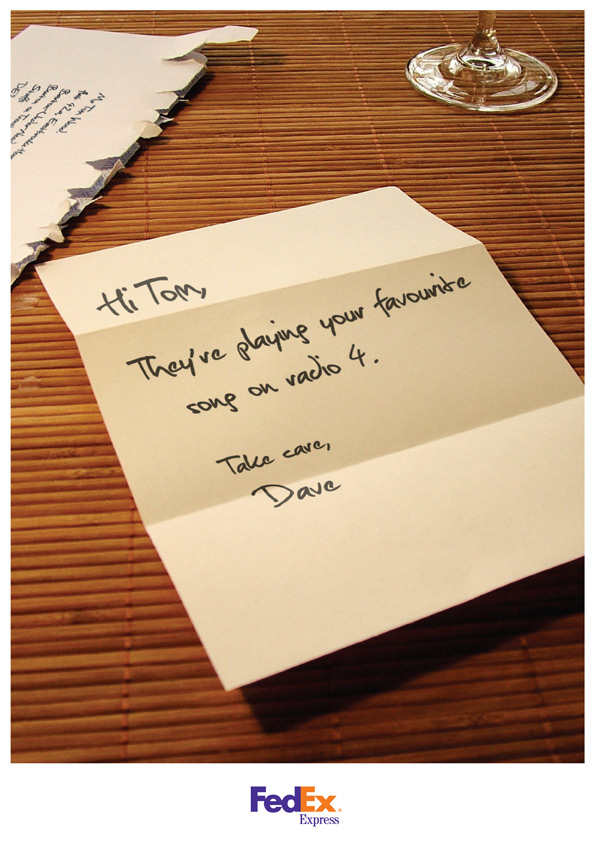 Mr Tom
42a,
Hi Tom,
They're playing your favourite
song on radio 4.
Take care,
Dave
FedEx®
Express